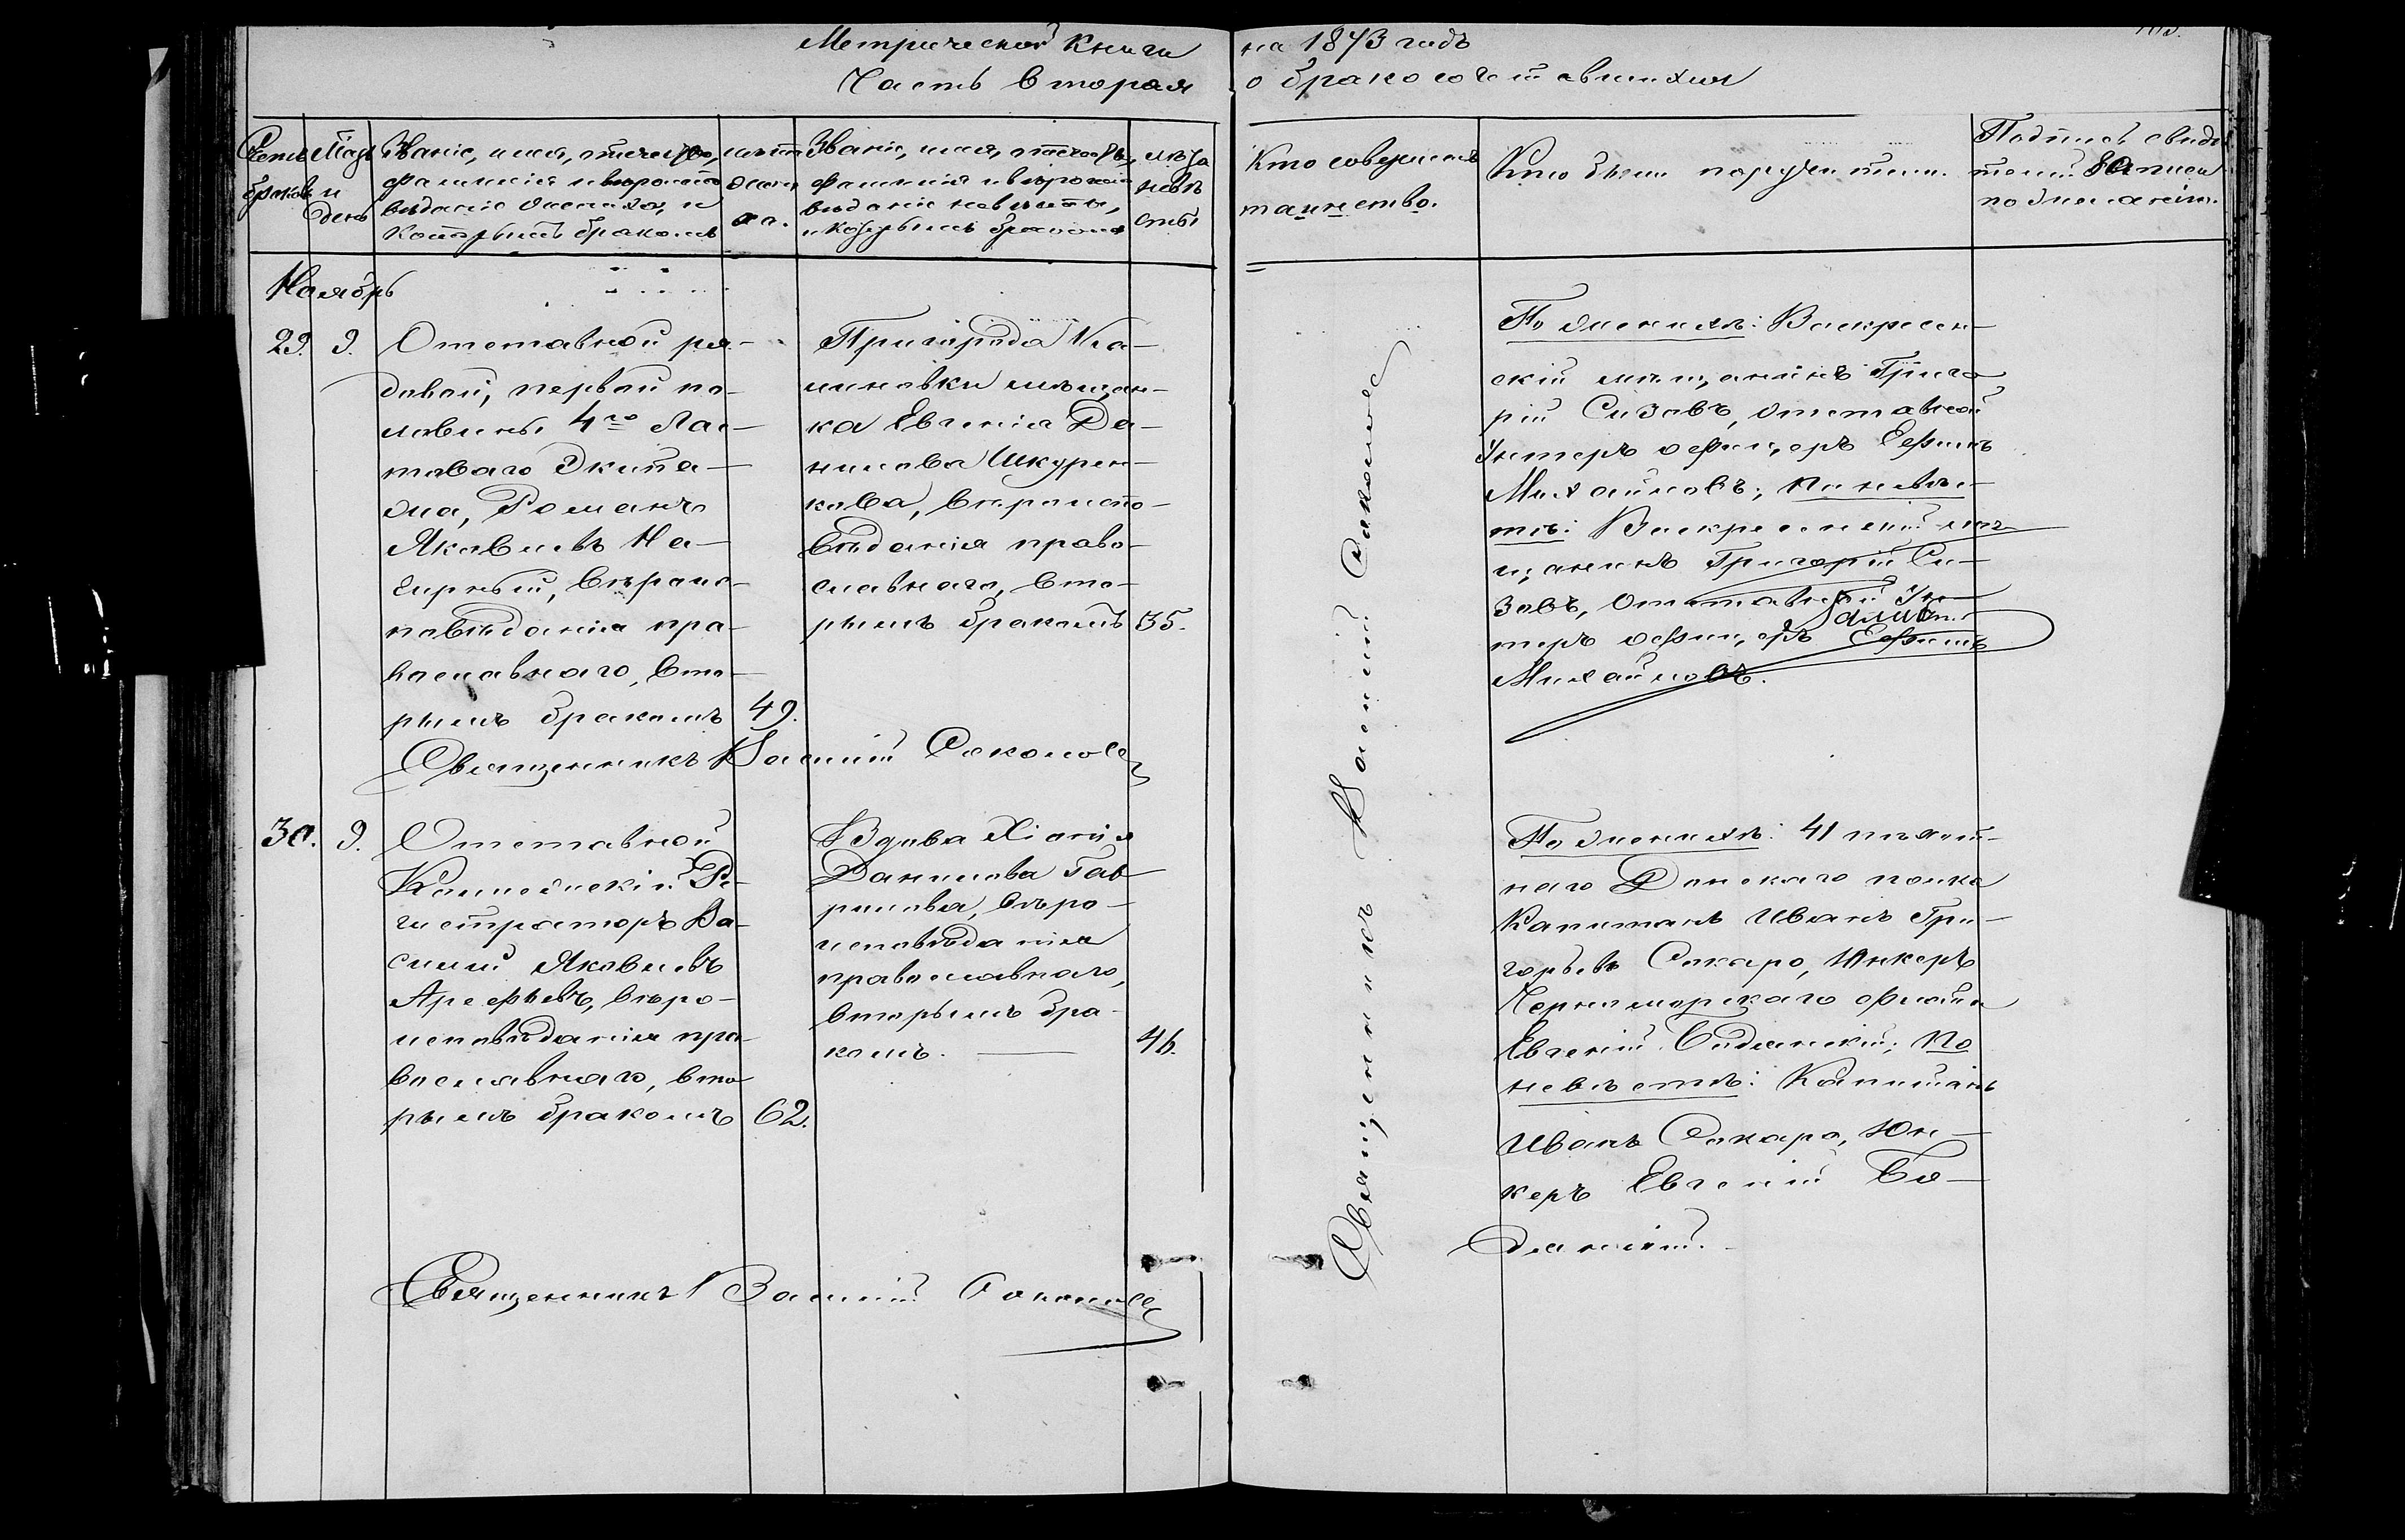 Метрической Книги на 1873 годъ
Часть вторая о бракосочетавшихся
Счетъ браковъ
и день
Званіе, имя, отчество,
фамилія и вѣроиспо
вѣданіе жениха, и
которымъ бракомъ
лѣта
жени
ха.
Званіе, имя, отчество,
фамилія и вѣроиспо
вѣданіе невѣсты,
и которымъ бракомъ
лѣта
невѣ
сты
Кто совершалъ
таинство.
Кто были поручители.
Подпись свидѣ
телей записи
по желанію.
Ноябрь
29. 9.
Отставной ря-
довой, первой по-
ловины 4го Лас-
товаго Экипа-
жа, Романъ
Яковлевъ На-
гирный, вѣроис-
повѣданія пра-
вославнаго, вто-
рымъ бракомъ 49.
Пригорода Ка-
линовки мѣщан-
ка Евгенія Да-
нилова Шкурен-
кова, вѣроиспо-
вѣданія право-
славнаго, вто-
рымъ бракомъ 35.
Священникъ Василій Соколовъ
По женихѣ: Воскресен-
скій мѣщанинъ Григо-
рій Сизовъ, отставной
Унтеръ офицеръ Ефимъ
Михайловъ; по невѣс-
тѣ: Воскресенскій мѣ-
щанинъ Григорій Си-
зовъ, отставной Ун-
теръ офицеръ Ефимъ
Михайловъ.
30. 9.
Отставной
Коллежскій Ре-
гистраторъ Ва-
силій Яковлевъ
Арефьевъ, вѣро-
исповѣданія пра-
вославнаго, вто-
рымъ бракомъ 62.
Вдова Хіонія
Данилова Гав-
рилова, вѣро-
исповѣданія
православнаго,
вторымъ бра-
комъ. 46.
Священникъ Василій Соколовъ
Священникъ Василій Соколовъ
По женихѣ: 41 пѣхот-
наго Донскаго полка
Капитанъ Иванъ Гри-
горьевъ Сокаро, Юнкеръ
Черноморскаго флота
Евгеній; По
невѣстѣ: Капитанъ
Иванъ Сокаро, Юн-
керъ Евгеній